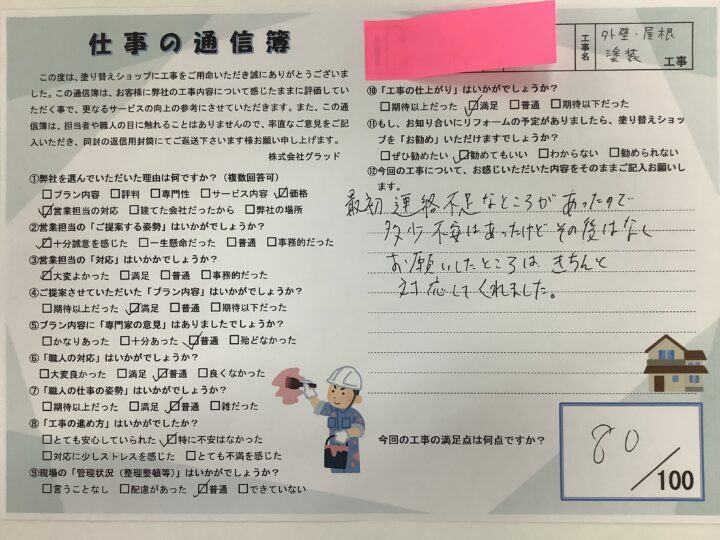 仕事の通信簿
この度は、塗り替えショップに工事をご用命いただき誠にありがとうございま
した。この通信簿は、お客様に弊社の工事内容について感じたままに評価してい
ただく事で、更なるサービスの向上の参考にさせていただきます。また、この通
信簿は、担当者や職人の目に触れることはありませんので、率直なご意見をご記
入いただき、同封の返信用封筒にてご返送下さいます様お願い申し上げます。
株式会社グラッド
①弊社を選んでいただいた理由は何ですか？（複数回答可）
□プラン内容 □評判 □専門性 □サービス内容 ☑価格
☑営業担当の対応 □建てた会社だったから □弊社の場所
②営業担当の「ご提案する姿勢」はいかがでしょうか？
☑十分誠意を感じた □一生懸命だった □普通 □事務的だった
③営業担当の「対応」はいかかでしょうか？
☑大変よかった □満足 □普通 □事務的だった
④ご提案させていただいた「プラン内容」はいかがでしょうか？
□期待以上だった ☑満足 □普通 □期待以下だった
⑤プラン内容に「専門家の意見」はありましたでしょうか？
□かなりあった □十分あった ☑普通 □殆どなかった
⑥「職人の対応」はいかがでしょうか？
□大変良かった □満足 ☑普通 □良くなかった
⑦「職人の仕事の姿勢」はいかがでしょうか？
□期待以上だった □満足 ☑普通 □雑だった
⑧「工事の進め方」はいかがでしたか？
□とても安心していられた ☑特に不安はなかった
□対応に少しストレスを感じた □とても不満を感じた
⑨現場の「管理状況（整理整頓等）」はいかがでしょうか？
□言うことなし □配慮があった ☑普通 □できていない
工事名 外壁・屋根
塗装 工事
⑩「工事の仕上がり」はいかがでしょうか？
□期待以上だった ☑満足 □普通 □期待以下だった
⑪もし、お知り合いにリフォームの予定がありましたら、塗り替えショッ
プを「お勧め」いただけますでしょうか？
□ぜひ勧めたい ☑勧めてもいい □わからない □勧められない
⑫今回の工事について、お感じいただいた内容をそのままご記入お願いし
ます。
最初 連絡不足なところがあったので
多少不安はあったけどその後はなく
お願いしたところは きちんと
対応してくれました。
今回の工事の満足点は何点ですか？
80
/100